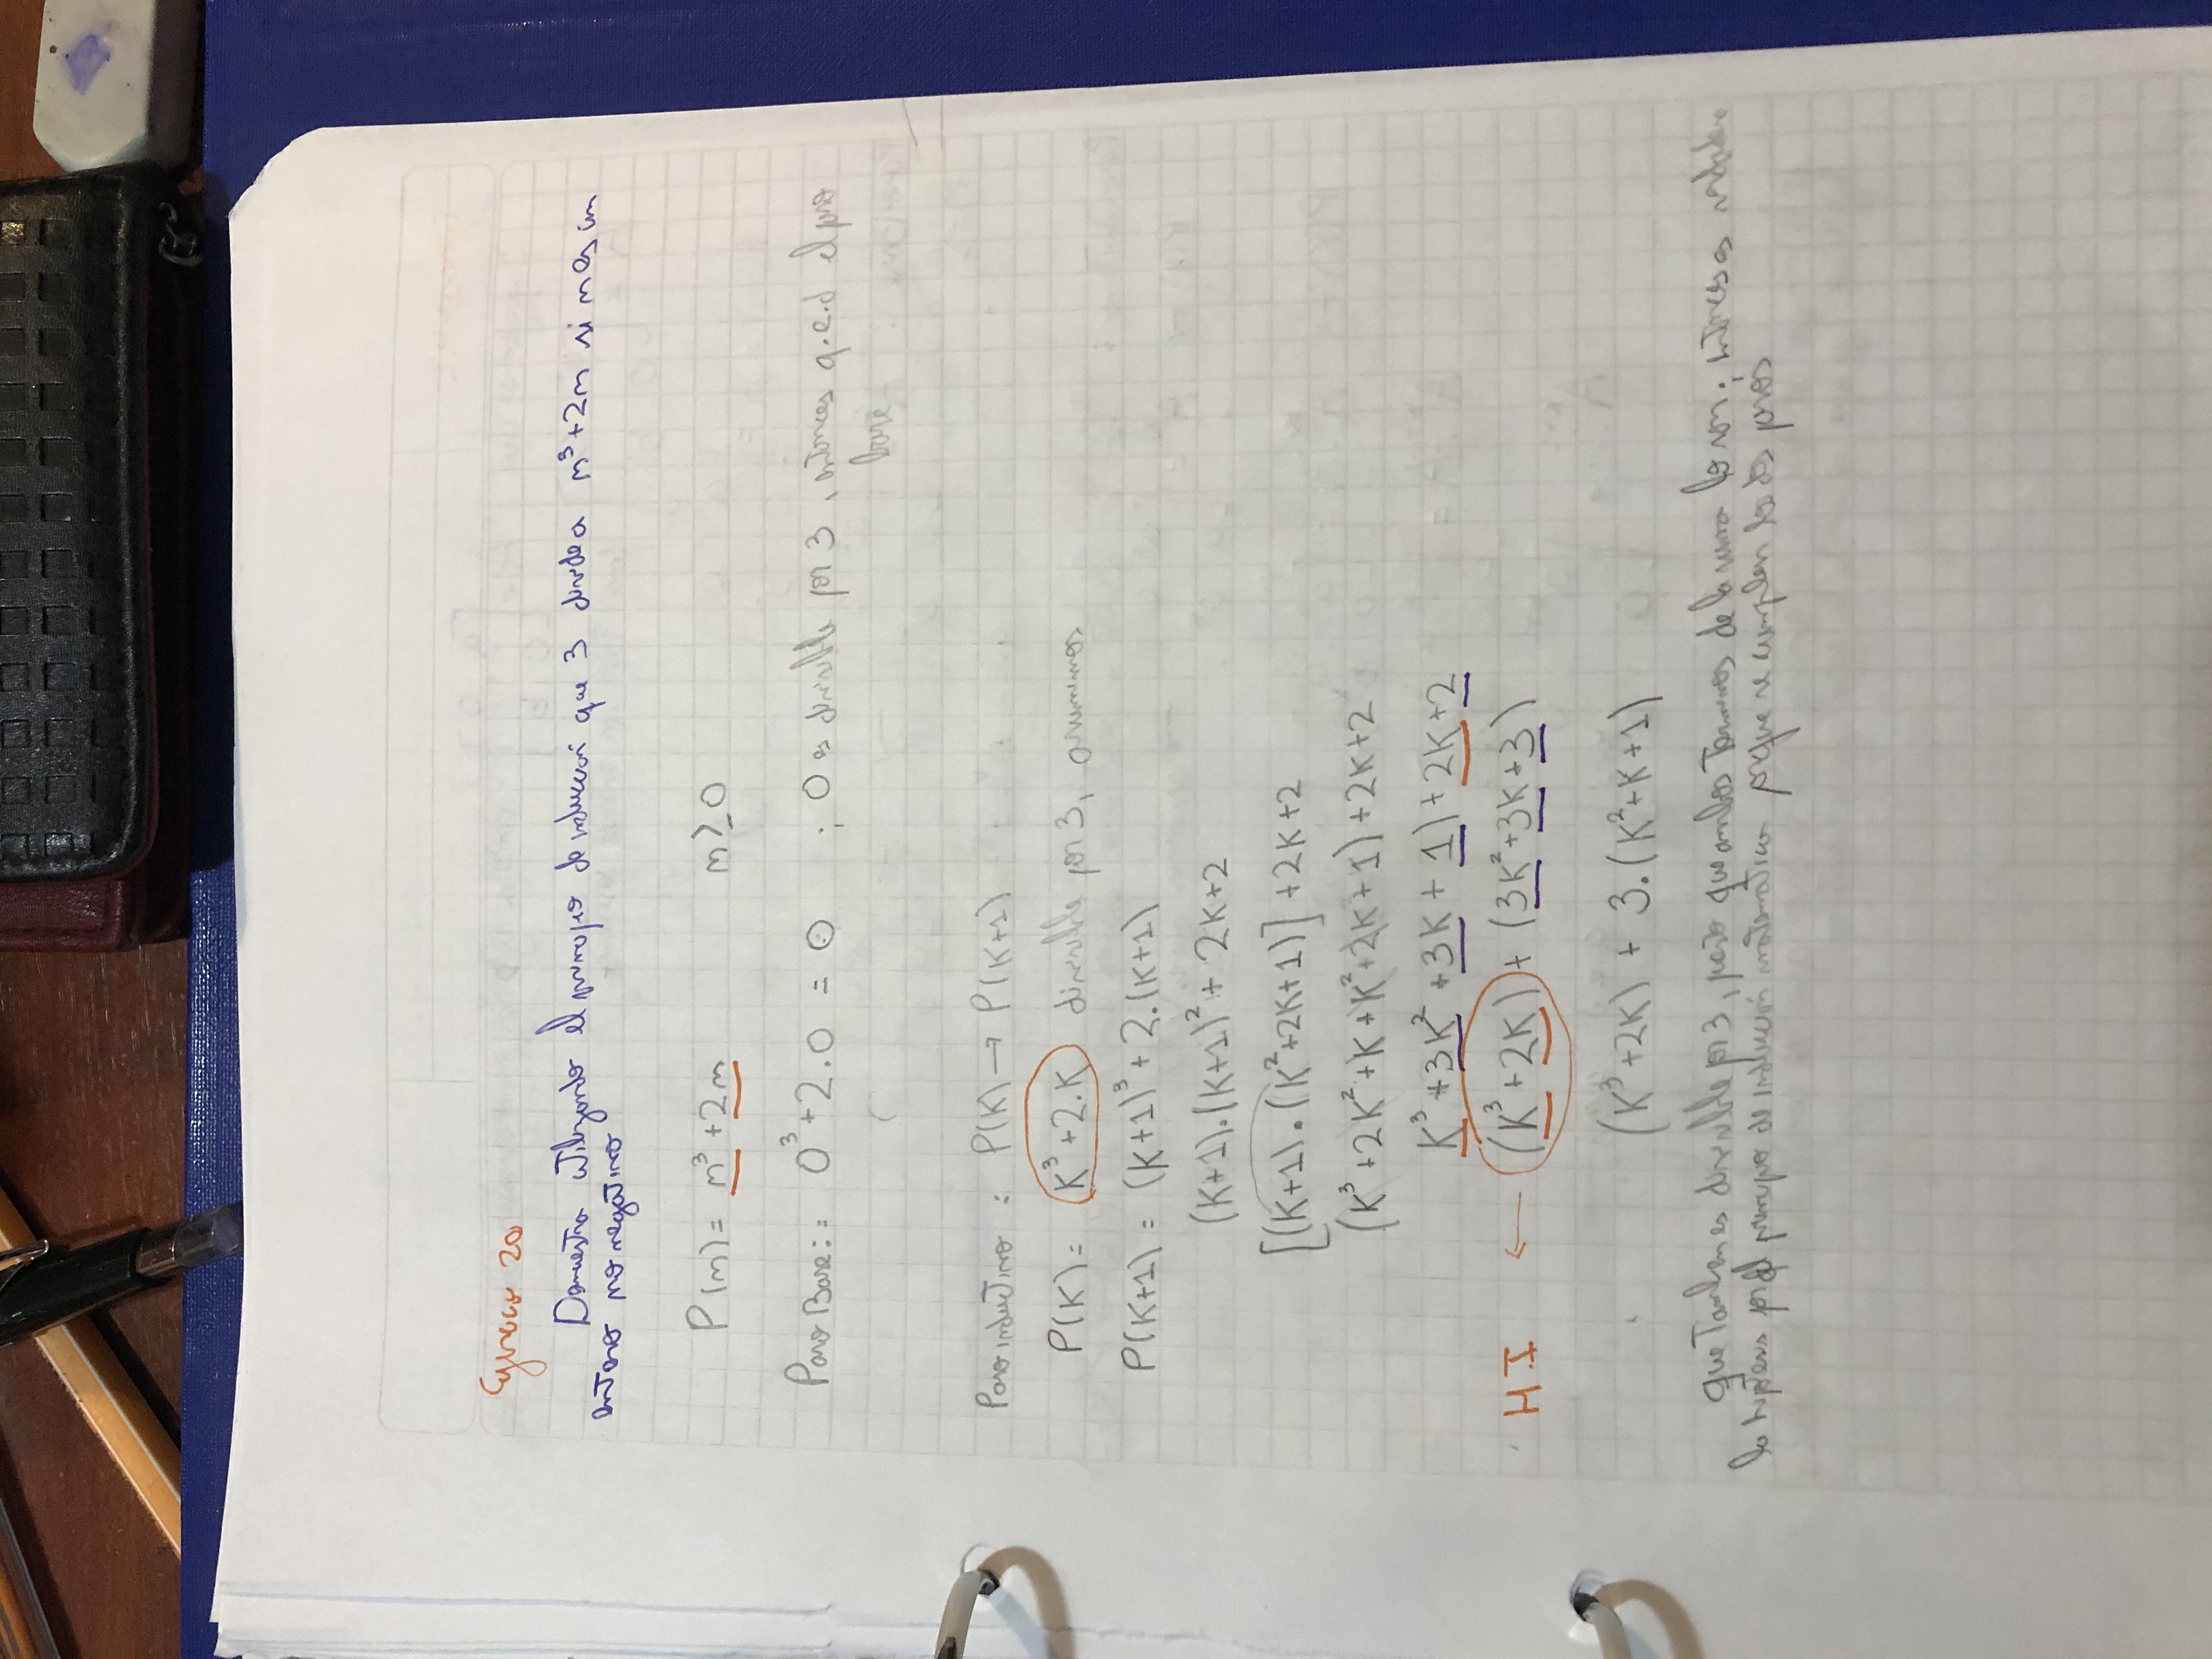 Ejercicio 20
Demuestra utilizando el principio de inducción que 3 divide a n³+2n si n es un
entero no negativo
P(n) = n³ + 2n n ≥ 0
Paso Base: = 0³ + 2.0 = 0 ; 0 es divisible por 3, entonces q.e.d el paso
base
Paso inductivo : P(K) → P(K+1)
P(K) = K³ + 2.K divisible por 3, asumimos
P(K+1) = (K+1)³ + 2.(K+1)
(K+1).(K+1)² + 2K+2
[(K+1).(K²+2K+1)] + 2K+2
(K³+2K²+K+K²+2K+1)+2K+2
K³+3K²+3K+1)+2K+2
H.I ← (K³+2K) + (3K²+3K+3)
(K³+2K) + 3.(K²+K+1)
que tambien es divisible por 3, puesto que ambos terminos de la suma lo son; entonces es verdadera
la hipótesis por el principio de inducción matemática porque se cumplen los dos pasos